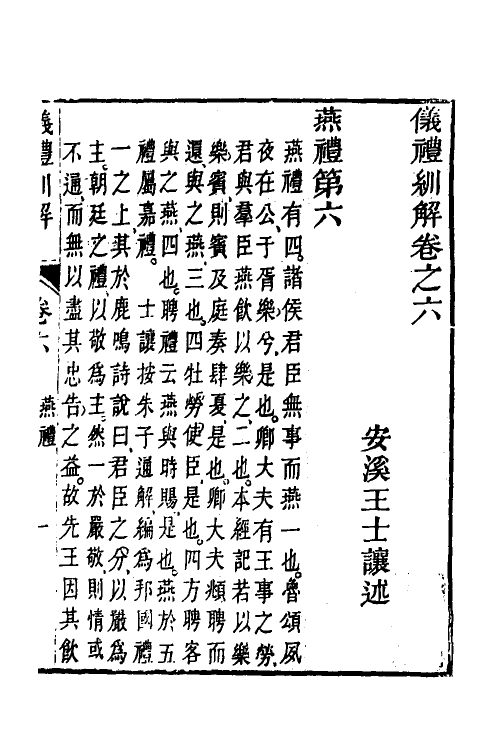 儀禮紃解卷之六
安溪王士讓述
燕禮第六
燕禮有四諸侯君臣無事而燕一也魯頌夙
夜在公于胥樂兮是也卿大夫有王事之勞
君與羣臣燕飲以樂之二也本經記若以樂
樂賓則賓及庭奏肆夏是也卿大夫頫聘而
還與之燕三也四牡勞使臣是也四方聘客
與之燕四也聘禮云燕與時賜是也燕於五
禮屬嘉禮 士讓按朱子通解編為邦國禮
一之上其於鹿鳴詩說曰君臣之分以嚴為
主朝廷之禮以敬為主然一於嚴敬則情或
不通而無以盡其忠告之益故先王因其飲
儀禮紃解 卷六 燕禮 一